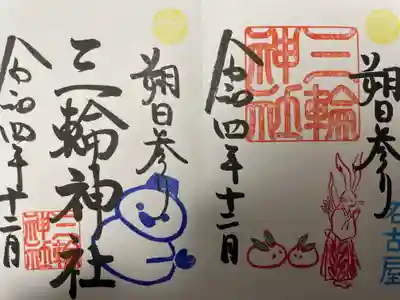 朔日参り
三輪神社
令和四年十二月
三輪神社
朔日参り
三輪神社
令和四年十二月
名古屋